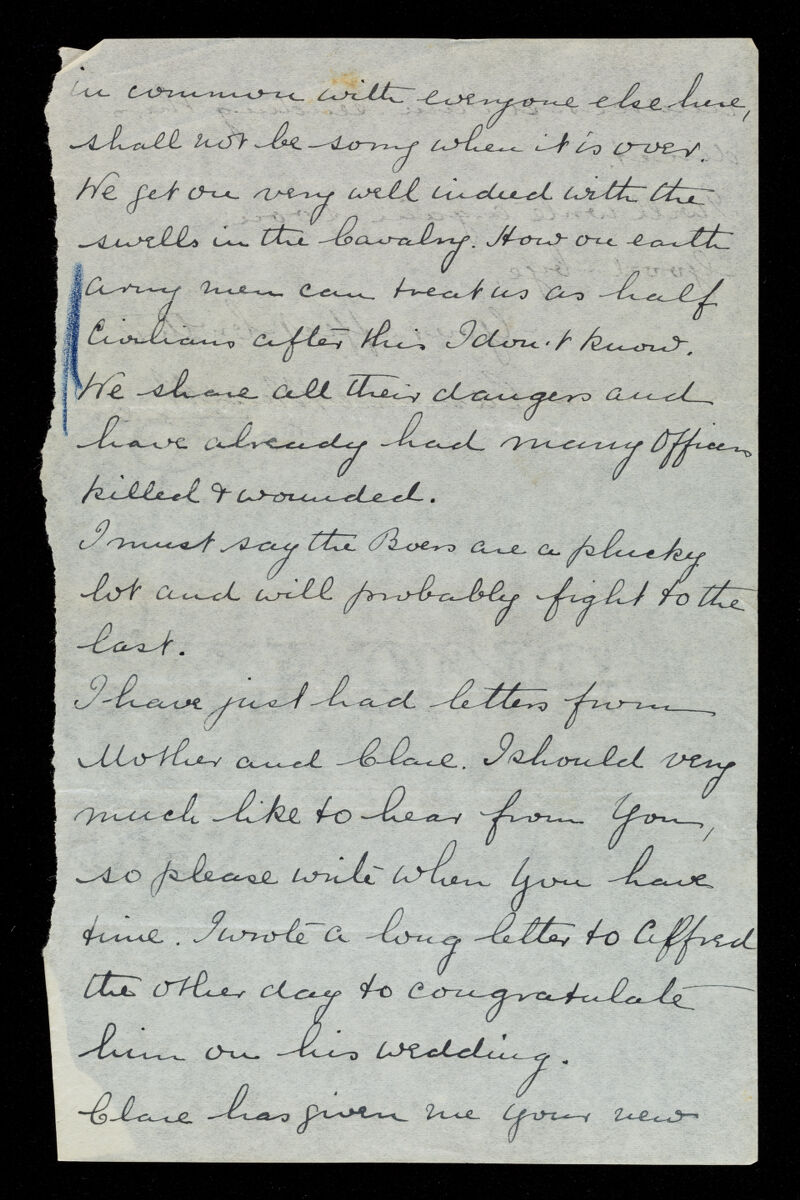 in common with everyone else here,
shall not be sorry when it is over.
We get on very well indeed with the
swells in the Cavalry. How on earth
army men can treat us as half
Civilians after this I don't know.
We share all their dangers and
have already had many Officers
killed & wounded.
I must say the Boers are a plucky
lot and will probably fight to the
last.
I have just had letters from
Mother and Clare. I should very
much like to hear from you,
so please write when you have
time. I wrote a long letter to Alfred
the other day to congratulate
him on his wedding.
Clare has given me your new